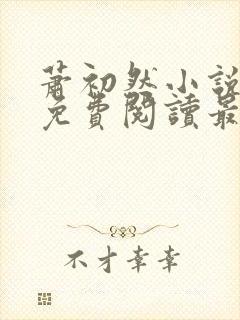 蕭初然小說
免費閱讀最
不才幸幸